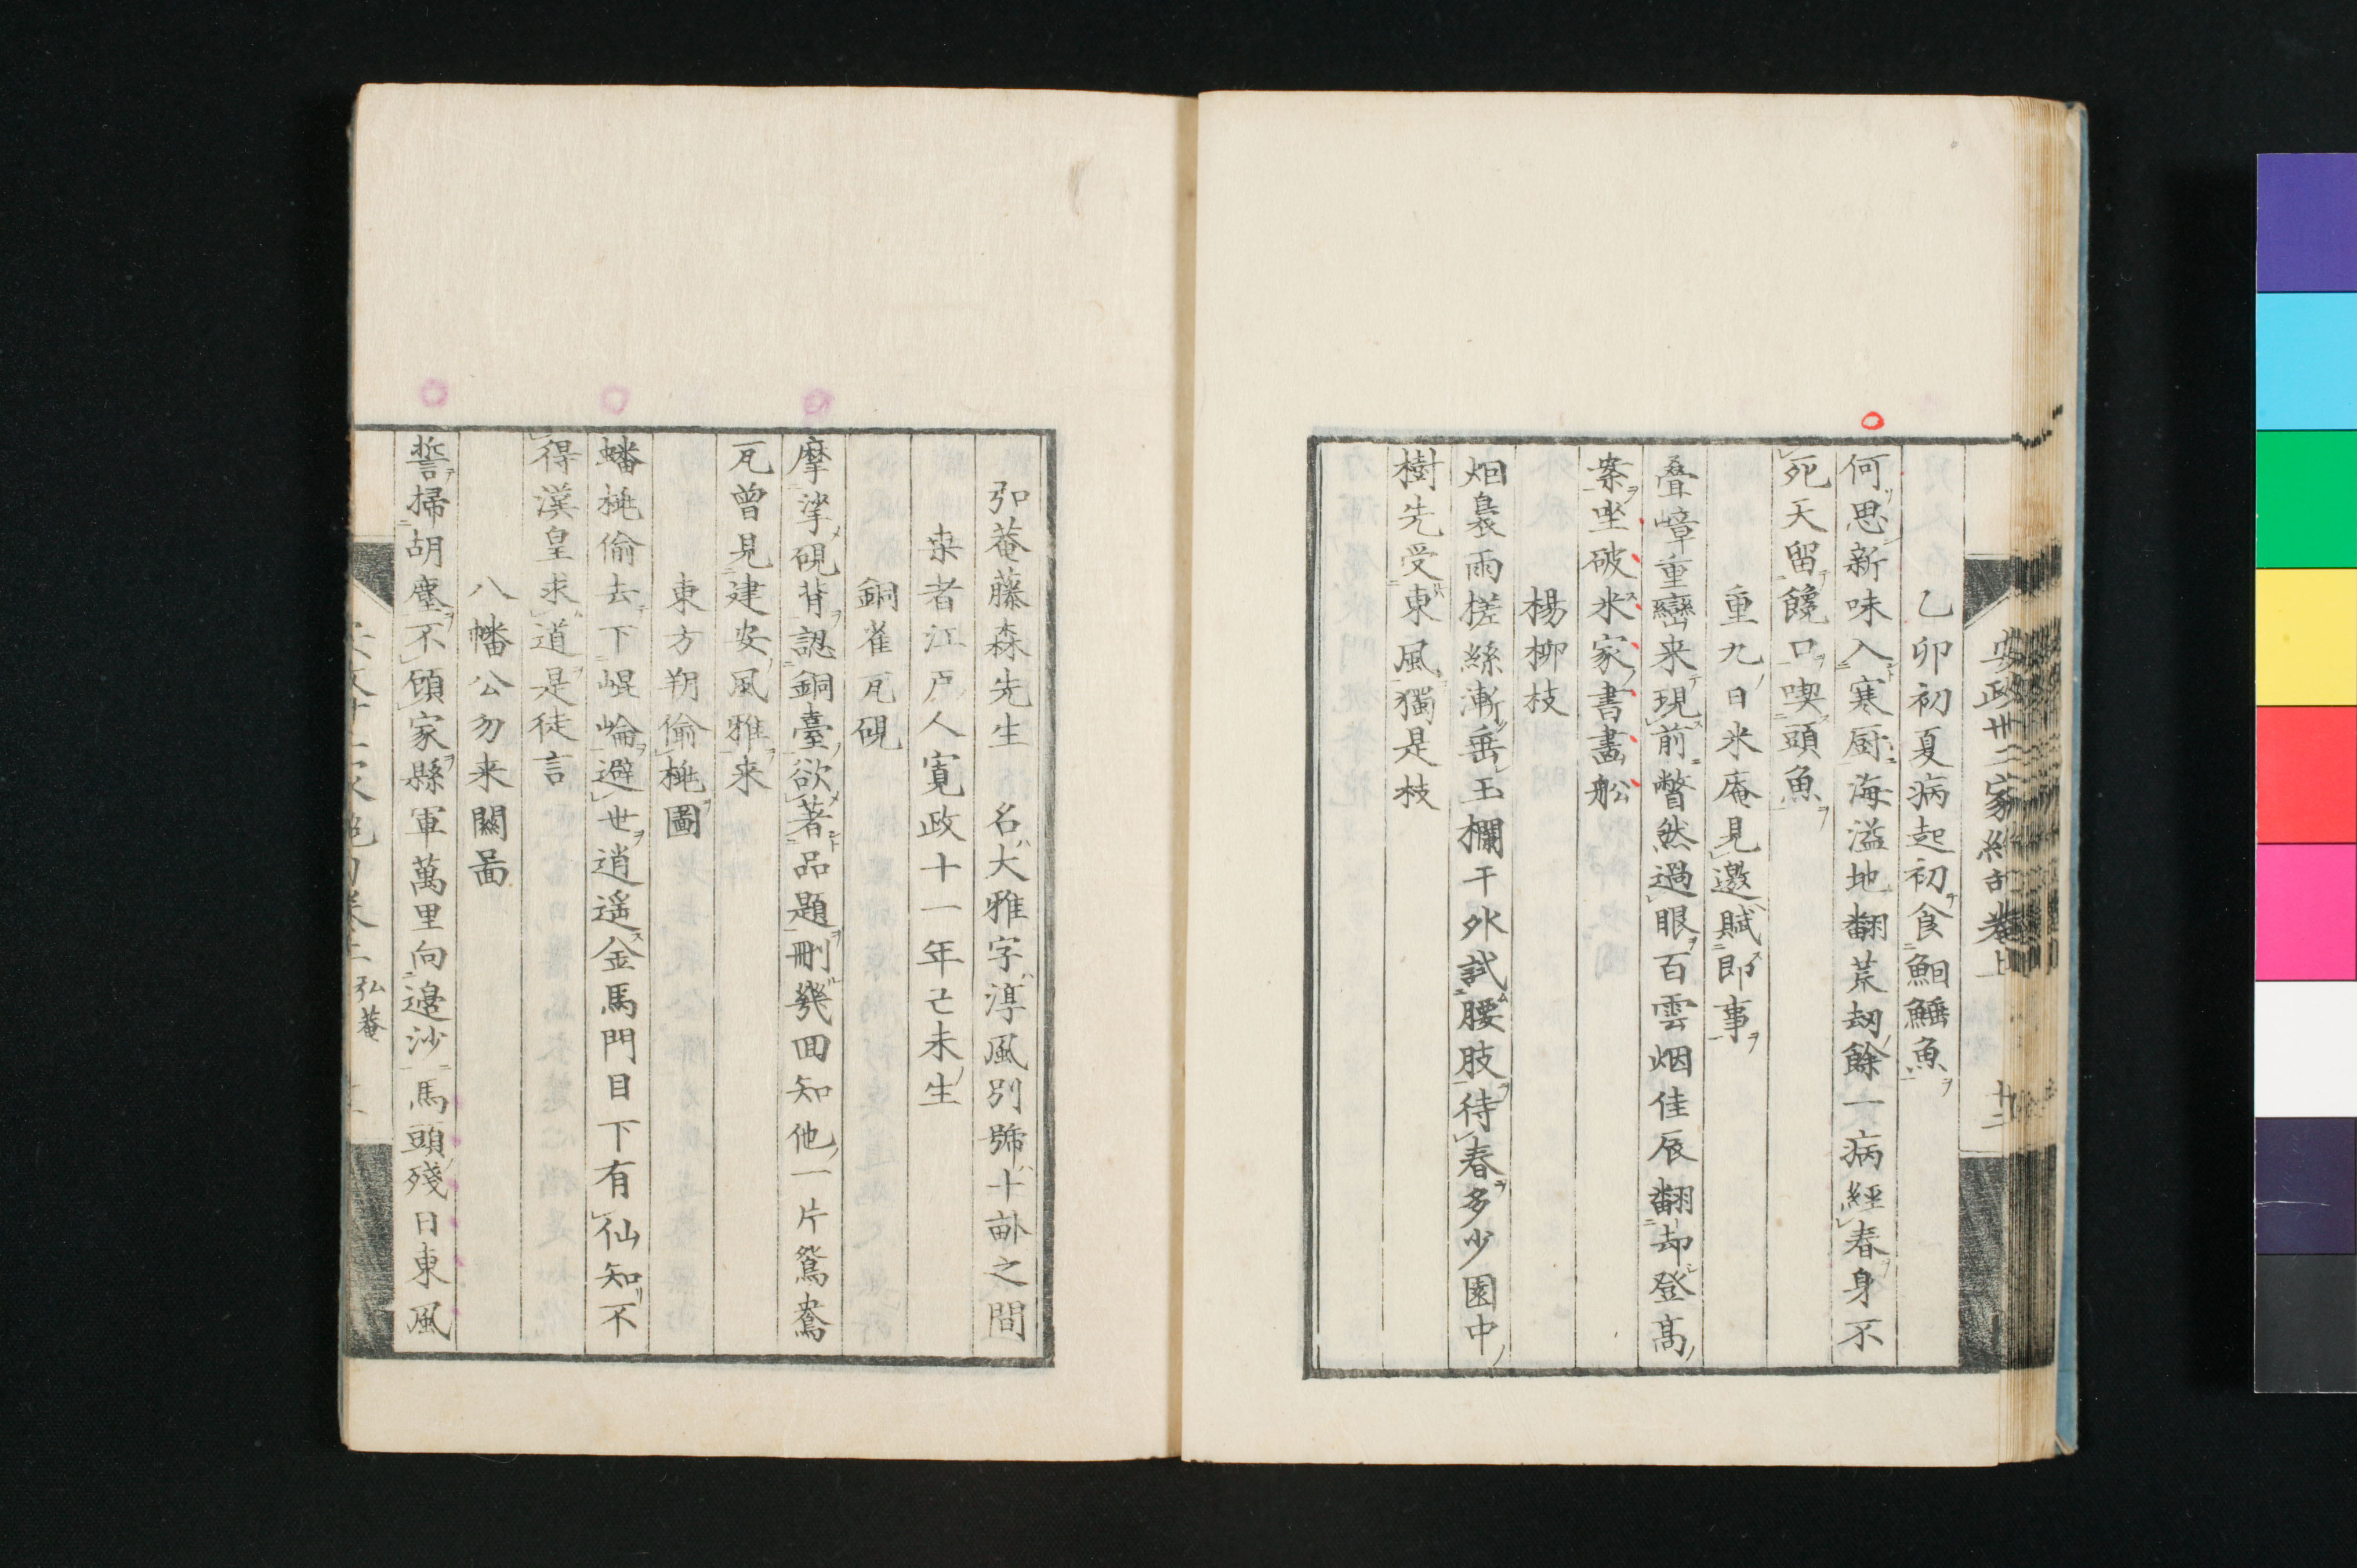 乙卯初夏病起初食鮰鱕魚
何思新味入寒厨海溢地翻荒刼餘一病經春身不
死天留饞口喫頭魚
重九日米庵見邀賦即事
疊嶂重巒来現前瞥然過眼百雲烟佳辰翻却登髙
案坐破米家書畫舩
楊柳枝
烟裊雨槎絲漸垂玉欄干外試腰肢待春多少園中
樹先受東風獨是枝
安政卅二家絶句巻上
弘菴藤森先生 名大雅字淳風別號十畝之間
桒者江戸人寛政十一年己未生
銅雀瓦硯
摩挲硯背認銅臺欲著品題刪幾回知他一片鴛鴦
瓦曾見建安風雅来
東方朔偷桃圖
蟠桃偷去下崐崘避世逍遥金馬門目下有仙知不
得漢皇求道是徒言
八幡公勿来關啚
誓掃胡塵不顧家縣軍萬里向邉沙馬頭殘日東風
弘菴